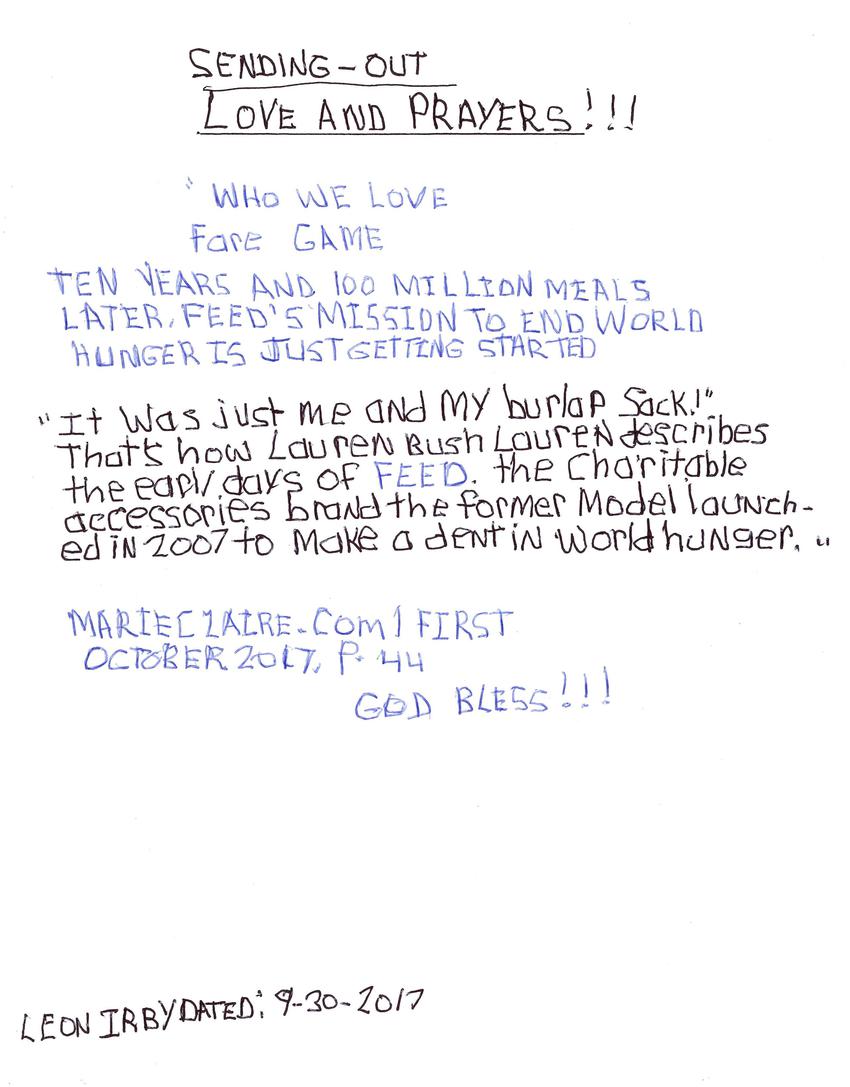 SENDING-OUT
LOVE AND PRAYERS!!!
" WHO WE LOVE
Fare GAME
TEN YEARS AND 100 MILLION MEALS
LATER, FEED'S MISSION TO END WORLD
HUNGER IS JUST GETTING STARTED
"It was just me and my burlap Sack!"
That's how Lauren Bush Lauren describes
the early days of FEED. the Charitable
accessories brand the former Model launch-
ed in 2007 to Make a dent in World hunger. "
MARIECLAIRE.Com | FIRST
OCTOBER 2017, P. 44
GOD BLESS!!!
LEON IRBY DATED: 9-30-2017